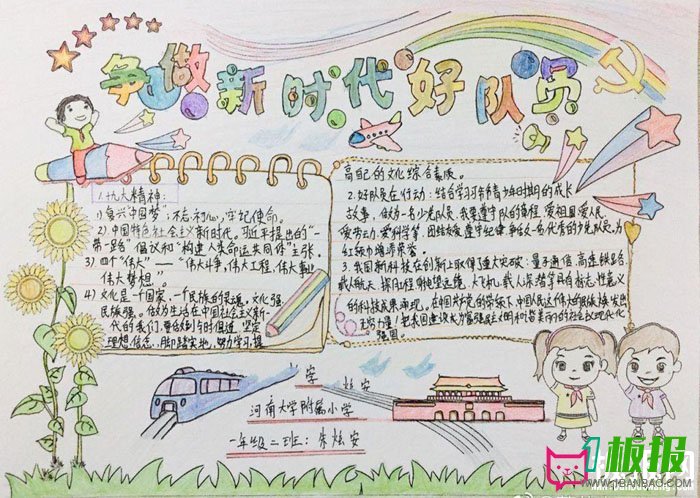 争做新时代好队员
1.十九大精神:
1) 复兴中国梦, 不忘初心, 牢记使命。
2) 中国特色社会主义新时代。习近平提出的"一
带一路"倡议和"构建人类命运共同体"主张。
3) 四个"伟大"——"伟大斗争, 伟大工程, 伟大事业
伟大梦想。"
4) 文化是一个国家、一个民族的灵魂。文化强
民族强。做为生活在中国社会主义新时
代的我们, 要做到与时俱进, 坚定
理想信念, 脚踏实地, 努力学习, 提
高自己的文化综合素质。
2. 好队员在行动: 结合学习习爷爷青少年时期的成长
故事, 做为一名少先队员, 我要遵守队的章程, 爱祖国爱人民,
爱劳动, 爱科学, 团结友爱 遵守纪律 争做一名优秀的少先队员, 为
红领巾增添荣誉。
3. 我国新科技在创新上取得了重大突破: 量子通信, 高速铁路,
载人航天, 探月工程 射电望远镜, 大飞机, 载人深潜等具有标志性意义
的科技成果涌现。在中国共产党的带领下 中国人民这个伟大的民族将发出
强国。
字 炫安
河南大学附属小学
一年级二班: 朱炫安
板报
WWW.1BANBAO.COM